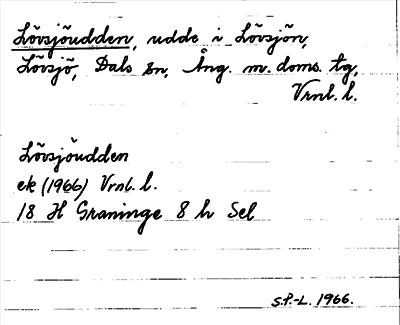 Lövsjöudden, udde i Lövsjön,
Lövsjö, Dals sn, Ång. m. doms. tg,
Vrnl. l.
Lövsjöudden
ek (1966) Vrnl. l.
18 H Graninge 8 h Sel
S.P.-L. 1966.